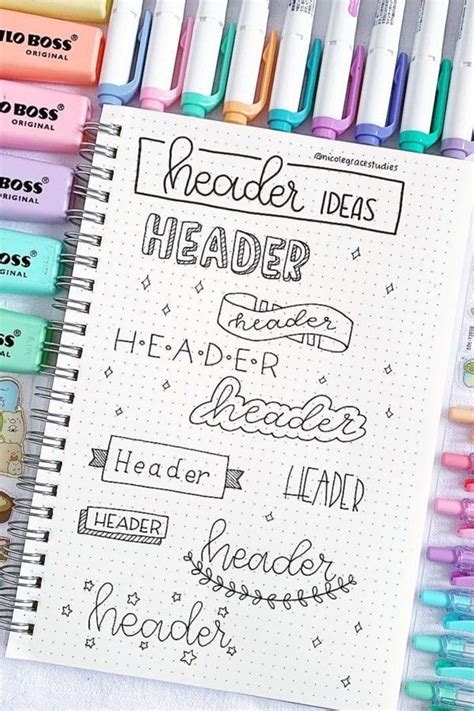 ILO BOSS
ORIGINAL
LO BOSS®
ORIGINAL
BOSS®
ORIGINAL
OSS®
ORIGINAL
OSS
ORIGINAL
@nicolegracestudies
header IDEAS
HEADER
header
H·E·A·D·E·R
header
Header
HEADER
HEADER
header
header